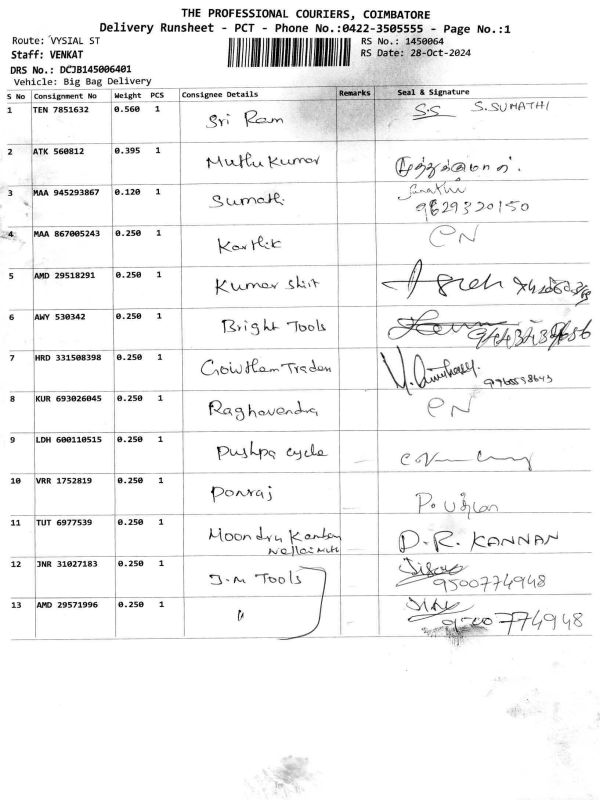 THE PROFESSIONAL COURIERS, COIMBATORE
Delivery Runsheet - PCT - Phone No.:0422-3505555 - Page No.:1
Route: VYSIAL ST
RS No.: 1450064
Staff: VENKAT
RS Date: 28-Oct-2024
DRS No.: DCJB145006401
Vehicle: Big Bag Delivery
S No Consignment No Weight PCS Consignee Details Remarks Seal & Signature
1 TEN 7851632 0.560 1 Sri Ram S.S S.SUMATHI
2 ATK 560812 0.395 1 Muthu Kumar
3 MAA 945293867 0.120 1 Sumathi 9629320150
4 MAA 867005243 0.250 1 Karthik
5 AMD 29518291 0.250 1 Kumar Shirt
6 AWY 530342 0.250 1 Bright Tools
7 HRD 331508398 0.250 1 Gowtham Traders
8 KUR 693026045 0.250 1 Raghavendra
9 LDH 600110515 0.250 1 Pushpa cycle
10 VRR 1752819 0.250 1 Ponraj P.
11 TUT 6977539 0.250 1 Moondru Kantan D.R. KANNAN
12 JNR 31027183 0.250 1 J.M Tools 9500774948
13 AMD 29571996 0.250 1 " 9500774948